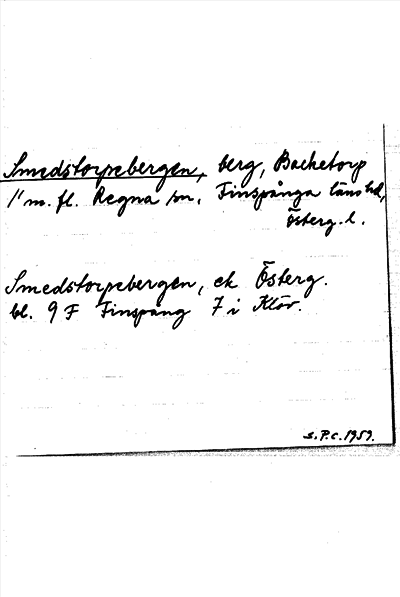 Smedstorpebergen, berg, Backetorp
1/1 m. fl. Regna sn, Finspånga läns hd,
Österg. l.
Smedstorpebergen, ek Österg.
bl. 9 F Finspång 7 i Klöv.
S.P.C. 1959.